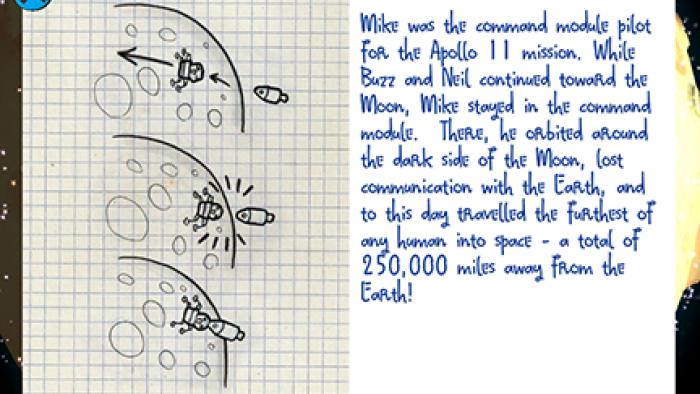 Mike was the command module pilot
for the Apollo 11 mission. While
Buzz and Neil continued toward the
Moon, Mike stayed in the command
module. There, he orbited around
the dark side of the Moon, lost
communication with the Earth, and
to this day travelled the furthest of
any human into space - a total of
250,000 miles away from the
Earth!